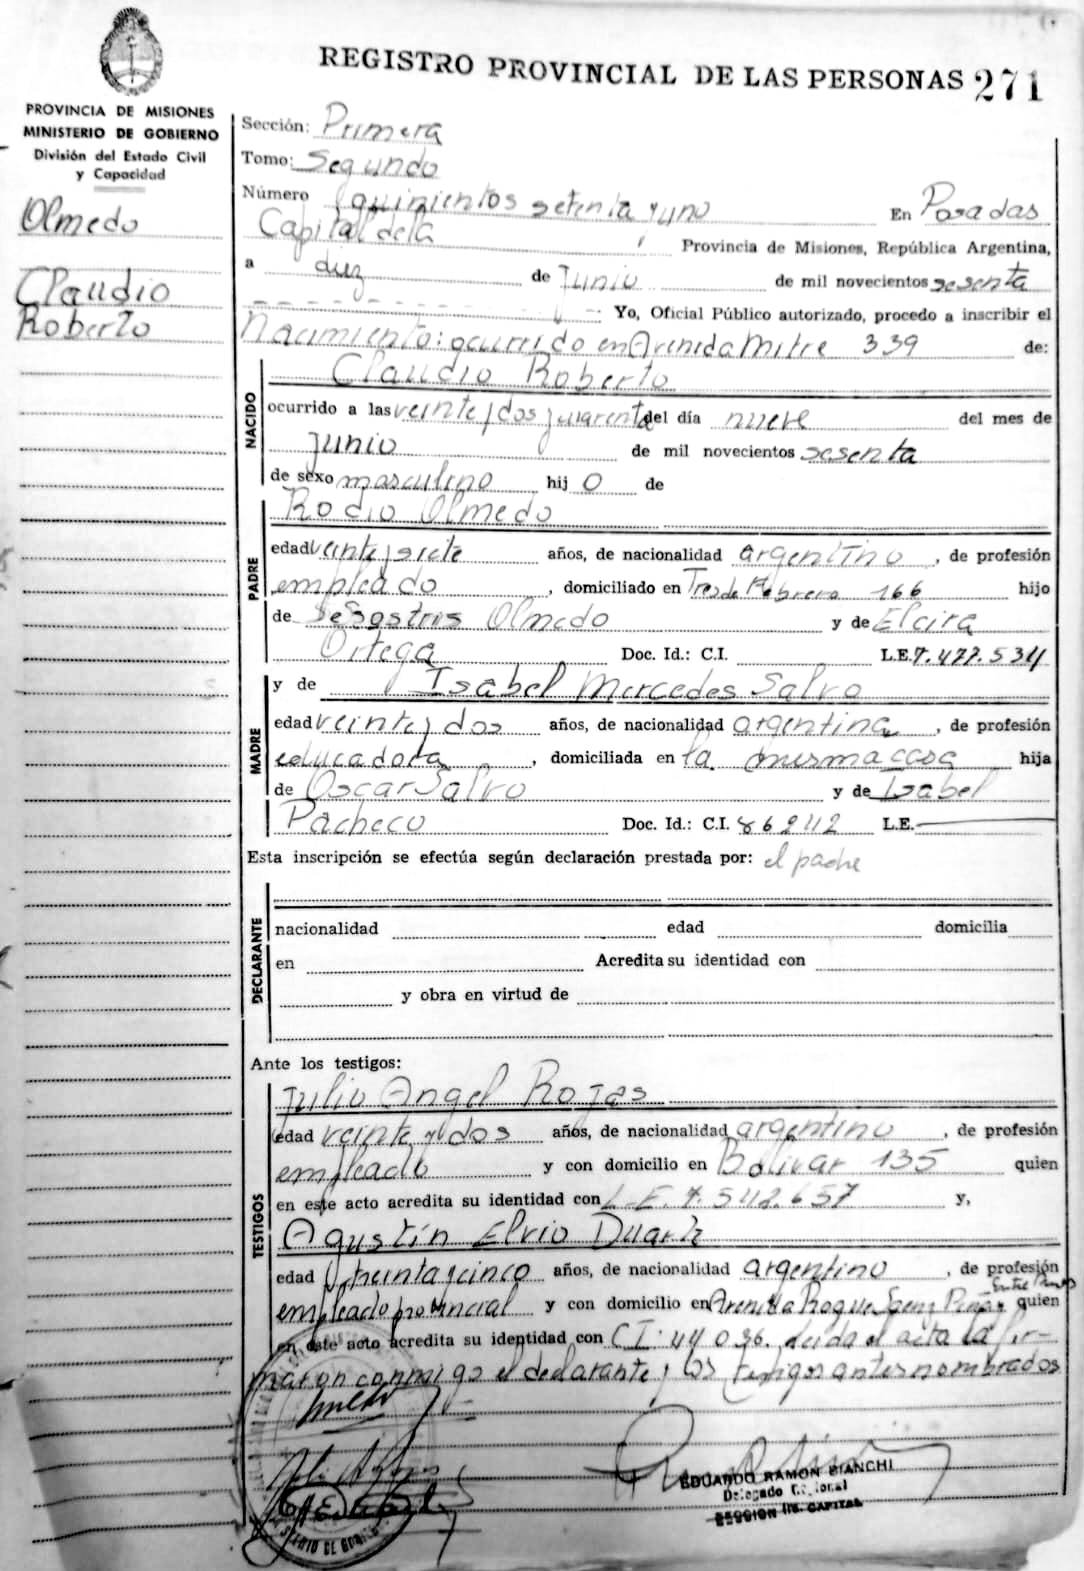 REGISTRO PROVINCIAL DE LAS PERSONAS 271
PROVINCIA DE MISIONES
MINISTERIO DE GOBIERNO
División del Estado Civil
y Capacidad
Olmedo
Claudio
Roberto
Sección: Primera
Tomo: Segundo
Número quinientos setenta y uno En Posadas
Capital de la Provincia de Misiones, República Argentina,
a diez de Junio de mil novecientos sesenta
Yo, Oficial Público autorizado, procedo a inscribir el
Nacimiento: ocurrido en Avenida Mitre 339 de:
NACIDO
Claudio Roberto
ocurrido a las veinte y dos y cuarenta del día nueve del mes de
Junio de mil novecientos sesenta
de sexo masculino hij o de
PADRE
Rodio Olmedo
edad veinte y siete años, de nacionalidad argentino, de profesión
empleado, domiciliado en Tres de Febrero 166 hijo
de Sesostris Olmedo y de Elcira
Ortega Doc. Id.: C.I. L.E. 7.477.534
MADRE
y de Isabel Mercedes Salvo
edad veinte y dos años, de nacionalidad argentina, de profesión
educadora, domiciliada en la misma casa hija
de Oscar Salvo y de Isabel
Pacheco Doc. Id.: C.I. 86242 L.E.
Esta inscripción se efectúa según declaración prestada por: el padre
DECLARANTE
nacionalidad edad domicilia
en Acredita su identidad con
y obra en virtud de
Ante los testigos:
TESTIGOS
Julio Angel Rojas
edad veinte y dos años, de nacionalidad argentino, de profesión
empleado y con domicilio en Bolivar 135 quien
en este acto acredita su identidad con L.E. 7.542.657 y,
Agustín Elvio Duarte
edad treinta y cinco años, de nacionalidad argentino, de profesión
empleado provincial y con domicilio en Avenida Roque Saenz Peña quien
en este acto acredita su identidad con C.I. 44036. leida el acta la fir-
maron conmigo el declarante y los testigos antes nombrados
EDUARDO RAMON BIANCHI
Delegado
CAPITAL